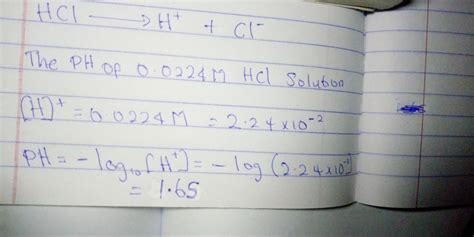 HCl ⟶ H⁺ + Cl⁻
The PH of 0.0224M HCl Solution
[H]⁺ = 0.0224M = 2.24 x 10⁻²
PH = - log₁₀ [H⁺] = - log (2.24 x 10⁻²)
= 1.65